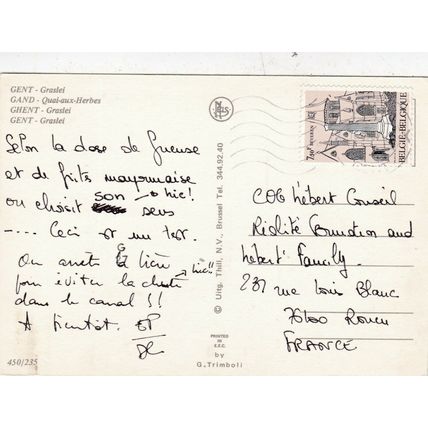 GENT - Graslei
GAND - Quai-aux-Herbes
GHENT - Graslei
GENT - Graslei
Selon la dose de Gueuse
et de frits mayonnaise
→ hic!
on choisit son sens
---. Ceci est un test.
On arrête la bière
pour éviter la chute → hic"
dans le canal !!
A bientôt.
450/235
© Uitg. Thill, N.V., Brussel Tel. 344.92.40
PRINTED
IN
E.E.C.
by
G. Trimboli
BELGIË-BELGIQUE
COG hébert Conseil
and
hébert Family.
237 rue Louis Blanc
76100 Rouen
FRANCE